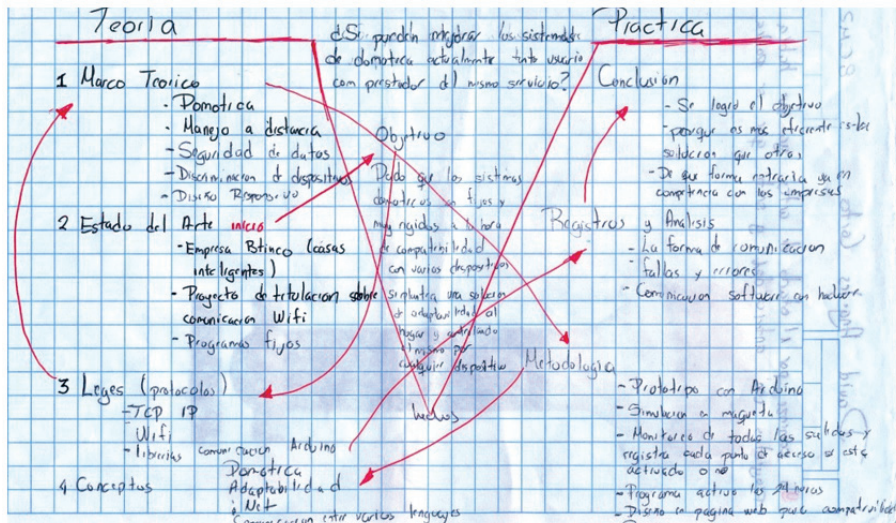 Teoria
1 Marco Teorico
- Domotica
- Manejo a distancia
- Seguridad de datos
- Discriminacion de dispositivos
- Diseño Responsivo
2 Estado del Arte
inicio
- Empresa Btinco (casas
inteligentes)
- Proyecto de titulacion sobre
comunicacion Wifi
- Programas fijos
3 Leyes (protocolos)
- TCP IP
Wifi
- librerias comunicacion Arduino
4 Conceptos
Domotica
Adaptabilidad
i Net
Comunicacion entre varios lenguajes
¿Se pueden mejorar los sistemas
de domotica actualmente tnto usuario
com prestador del mismo servicio?
Objetivo
Dado que los sistemas
domoticos son fijos y
muy rigidos a la hora
de compatibilidad
con varios dispositivos
se plantea una solucion
de adaptabilidad al
hogar y controlando
el mismo por
cualquier dispositivo
hechos
Practica
Conclusion
- Se logró el objetivo
- porque es mas eficiente
solucion que otras
- De que forma entraria ya en
competencia con las empresas
Registros y Analisis
- La forma de comunicacion
- fallas y errores
- Comunicacion software con hadware
Metodologia
- Prototipo con Arduino
- Simulacion a maqueta
- Monitoreo de todas las salidas y
registra cada punto de acceso si está
activado o no
- Programa activo las
- Diseño en pagina web para